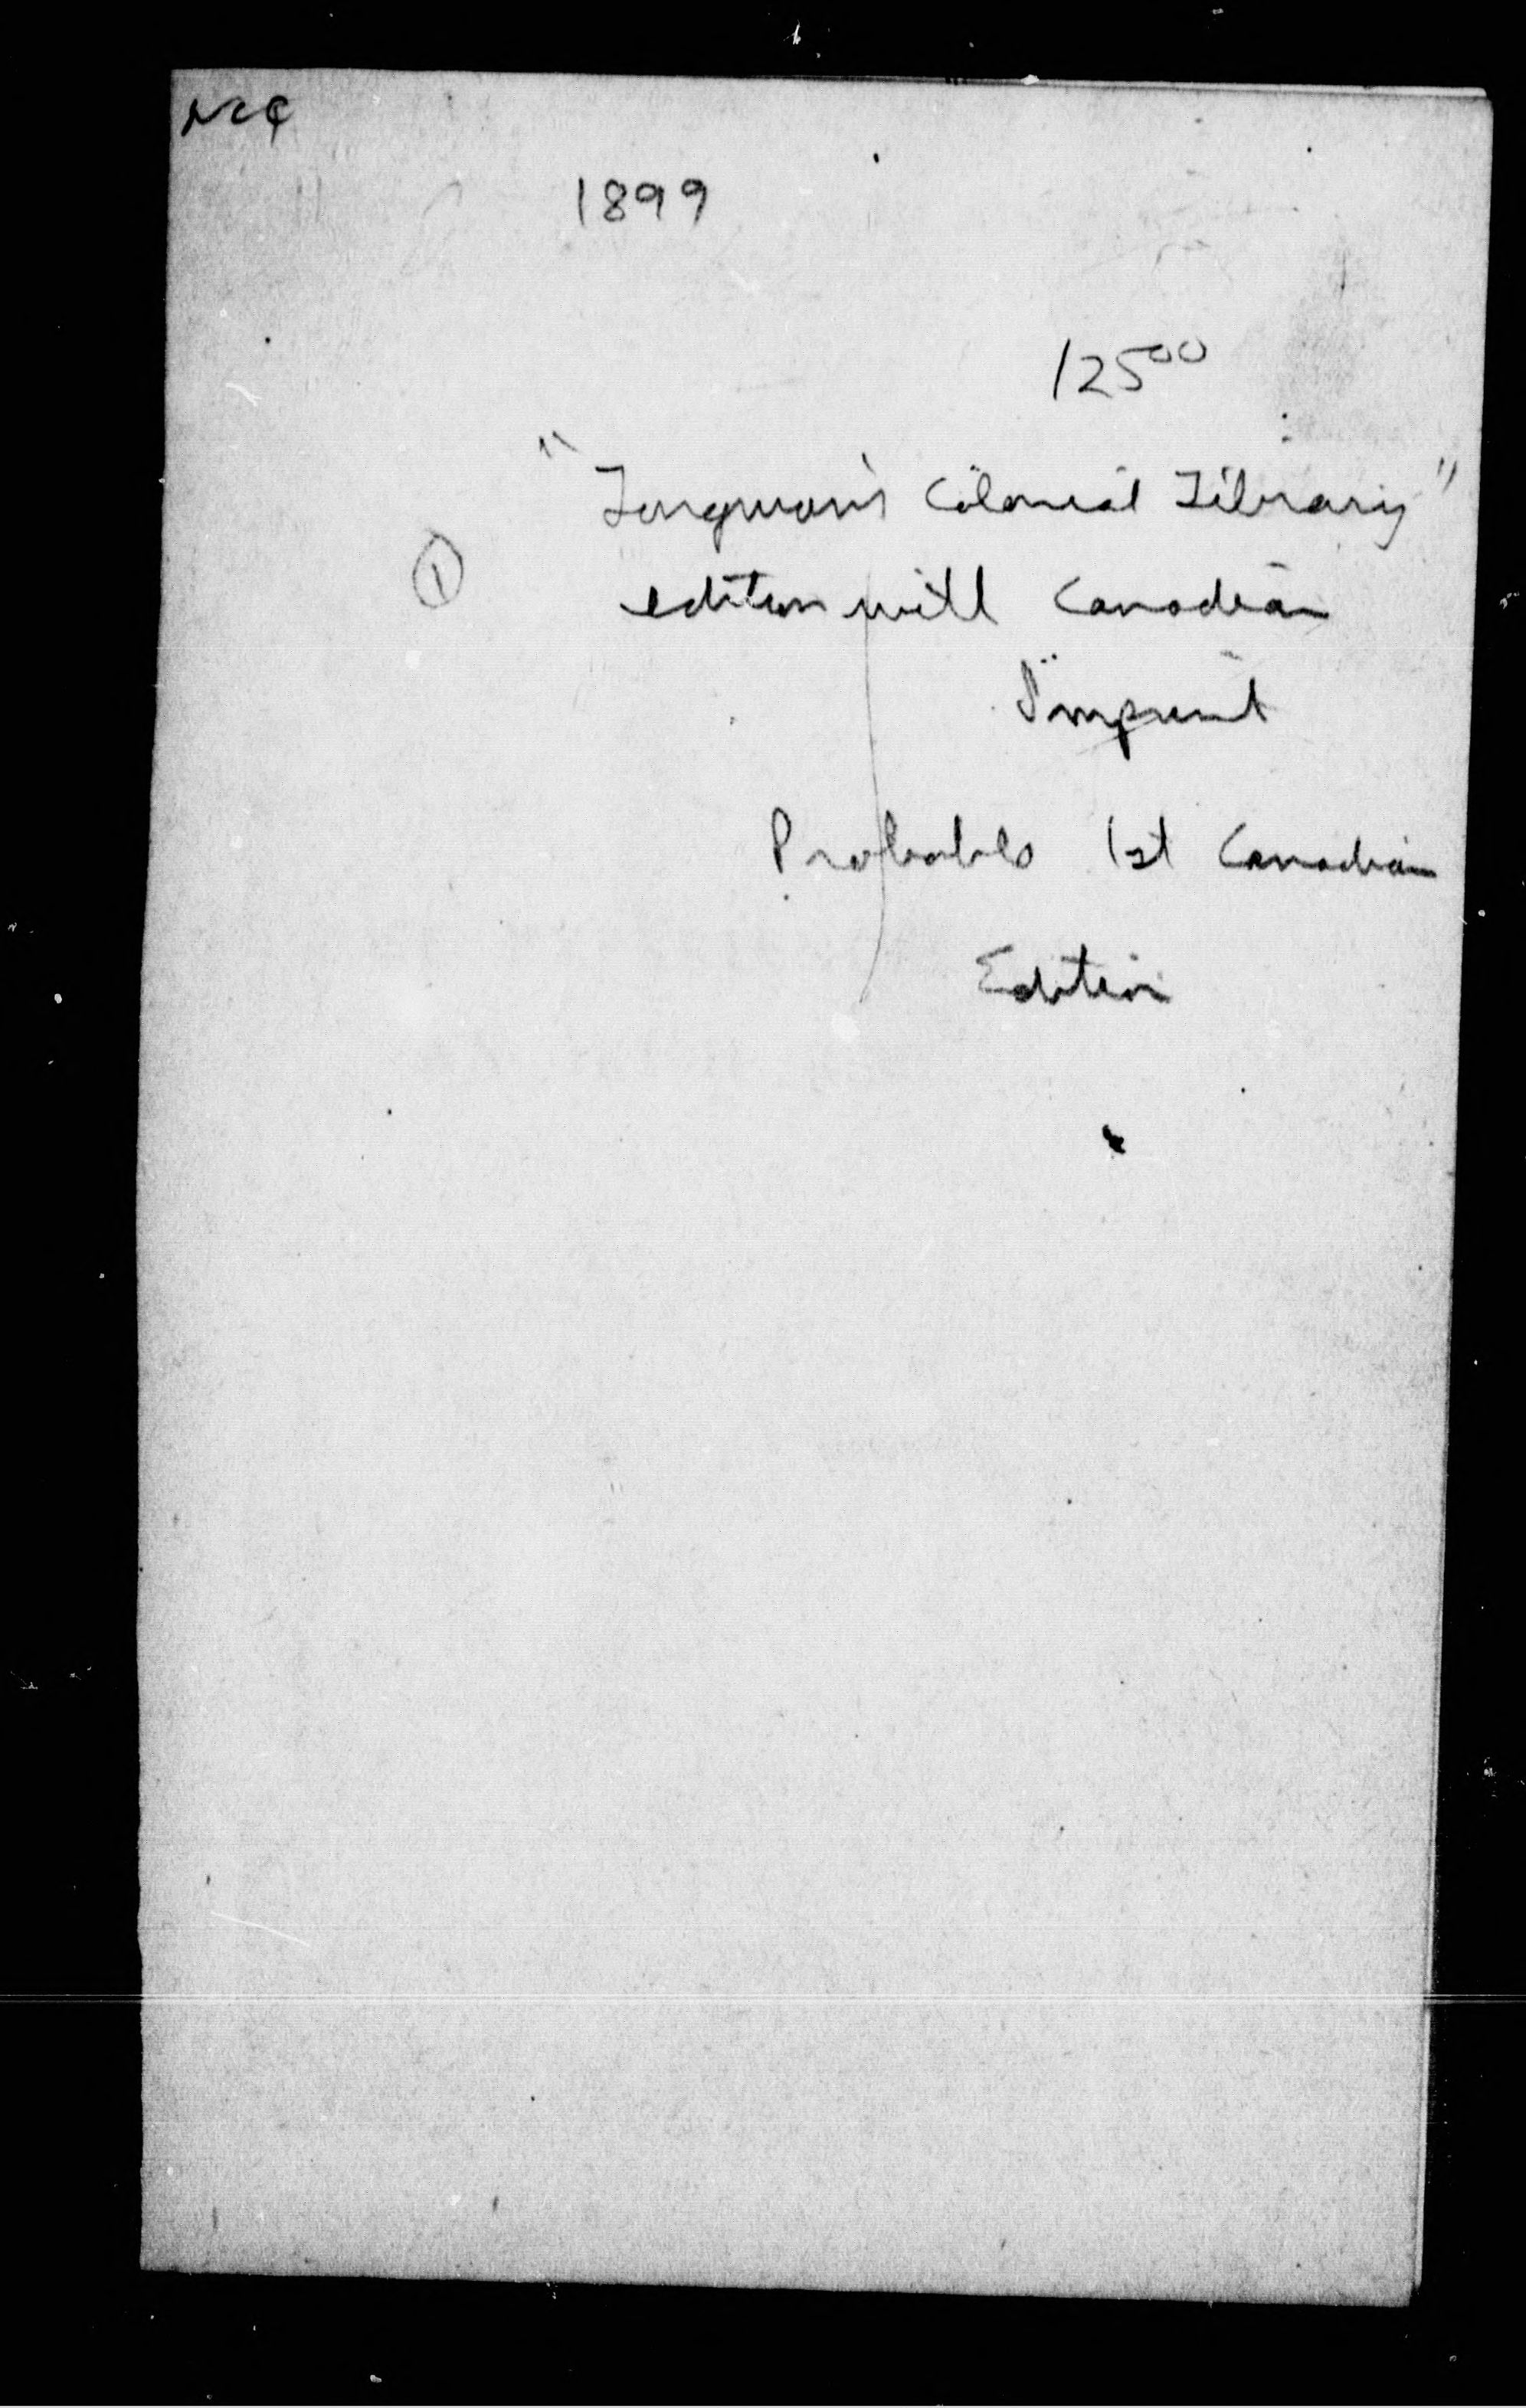 1899
125 00
"Longman's Colonial Library"
①
edition with Canadian
Imprint
Probable 1st Canadian
Edition